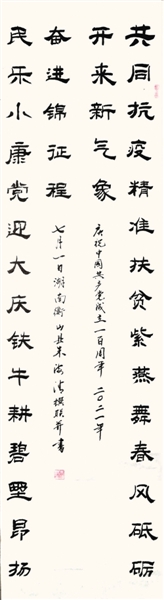 共同抗疫精准扶贫紫燕舞春风砥砺
开来新气象
庆祝中国共产党成立一百周年 二〇二一年
民乐小康党迎大庆铁牛耕碧野昂扬
奋进锦征程
七月一日湖南衡山县朱海清撰联并书